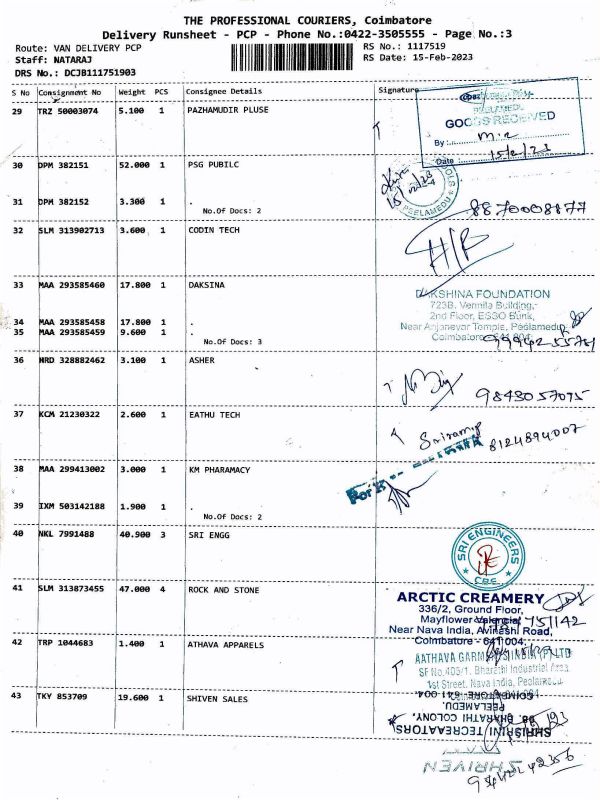 THE PROFESSIONAL COURIERS, Coimbatore
Delivery Runsheet - PCP - Phone No.:0422-3505555 - Page No.:3
Route: VAN DELIVERY PCP
RS No.: 1117519
Staff: NATARAJ
RS Date: 15-Feb-2023
DRS No.: DCJB111751903
S No Consignment No Weight PCS Consignee Details Signature
29 TRZ 50003074 5.100 1 PAZHAMUDIR PLUSE
PEELAMEDU
GOODS RECEIVED
By :
Date : 15/2/23
30 DPM 382151 52.000 1 PSG PUBILC
31 DPM 382152 3.300 1 .
No.Of Docs: 2
PEELAMEDU
8870008877
32 SLM 313902713 3.600 1 CODIN TECH
33 MAA 293585460 17.800 1 DAKSINA
DAKSHINA FOUNDATION
723B, Vennila Building,
2nd Floor, ESSO Bunk,
Near Anjaneyar Temple, Peelamedu,
Coimbatore-641 004.
34 MAA 293585458 17.800 1 .
35 MAA 293585459 9.600 1 .
No.Of Docs: 3
36 HRD 328882462 3.100 1 ASHER
9843057095
37 KCM 21230322 2.600 1 EATHU TECH
8124894007
38 MAA 299413002 3.000 1 KM PHARAMACY
For
39 IXM 503142188 1.900 1 .
No.Of Docs: 2
40 NKL 7991488 40.900 3 SRI ENGG
SRI ENGINEERS
CBE
41 SLM 313873455 47.000 4 ROCK AND STONE
ARCTIC CREAMERY
336/2, Ground Floor,
Mayflower Valencia,
Near Nava India, Avinashi Road,
Coimbatore - 641 004.
42 TRP 1044683 1.400 1 ATHAVA APPARELS
AATHAVA GARMENTS INDIA (P) LTD
SF No.405/1, Bharathi Industrial Area
1st Street, Nava India, Peelamedu
43 TKY 853709 19.600 1 SHIVEN SALES
COIMBATORE-641 004
PEELAMEDU,
BHARATHI COLONY,
SHRISRINI TECREAATORS
SHRIVEN